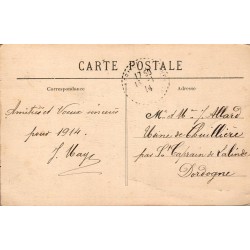 CARTE POSTALE
Correspondance
Adresse
Amitiés et Voeux sincères
pour 1914.
J. Maye
M. et Mme J. Allard
Usine de
par St Caprais de Lalinde
Dordogne
14